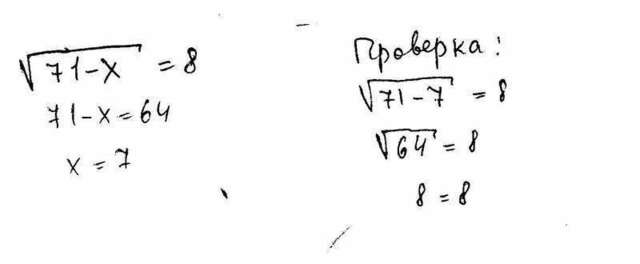 √71-x = 8
71-x=64
x = 7
Проверка:
√71-7 = 8
√64 = 8
8 = 8